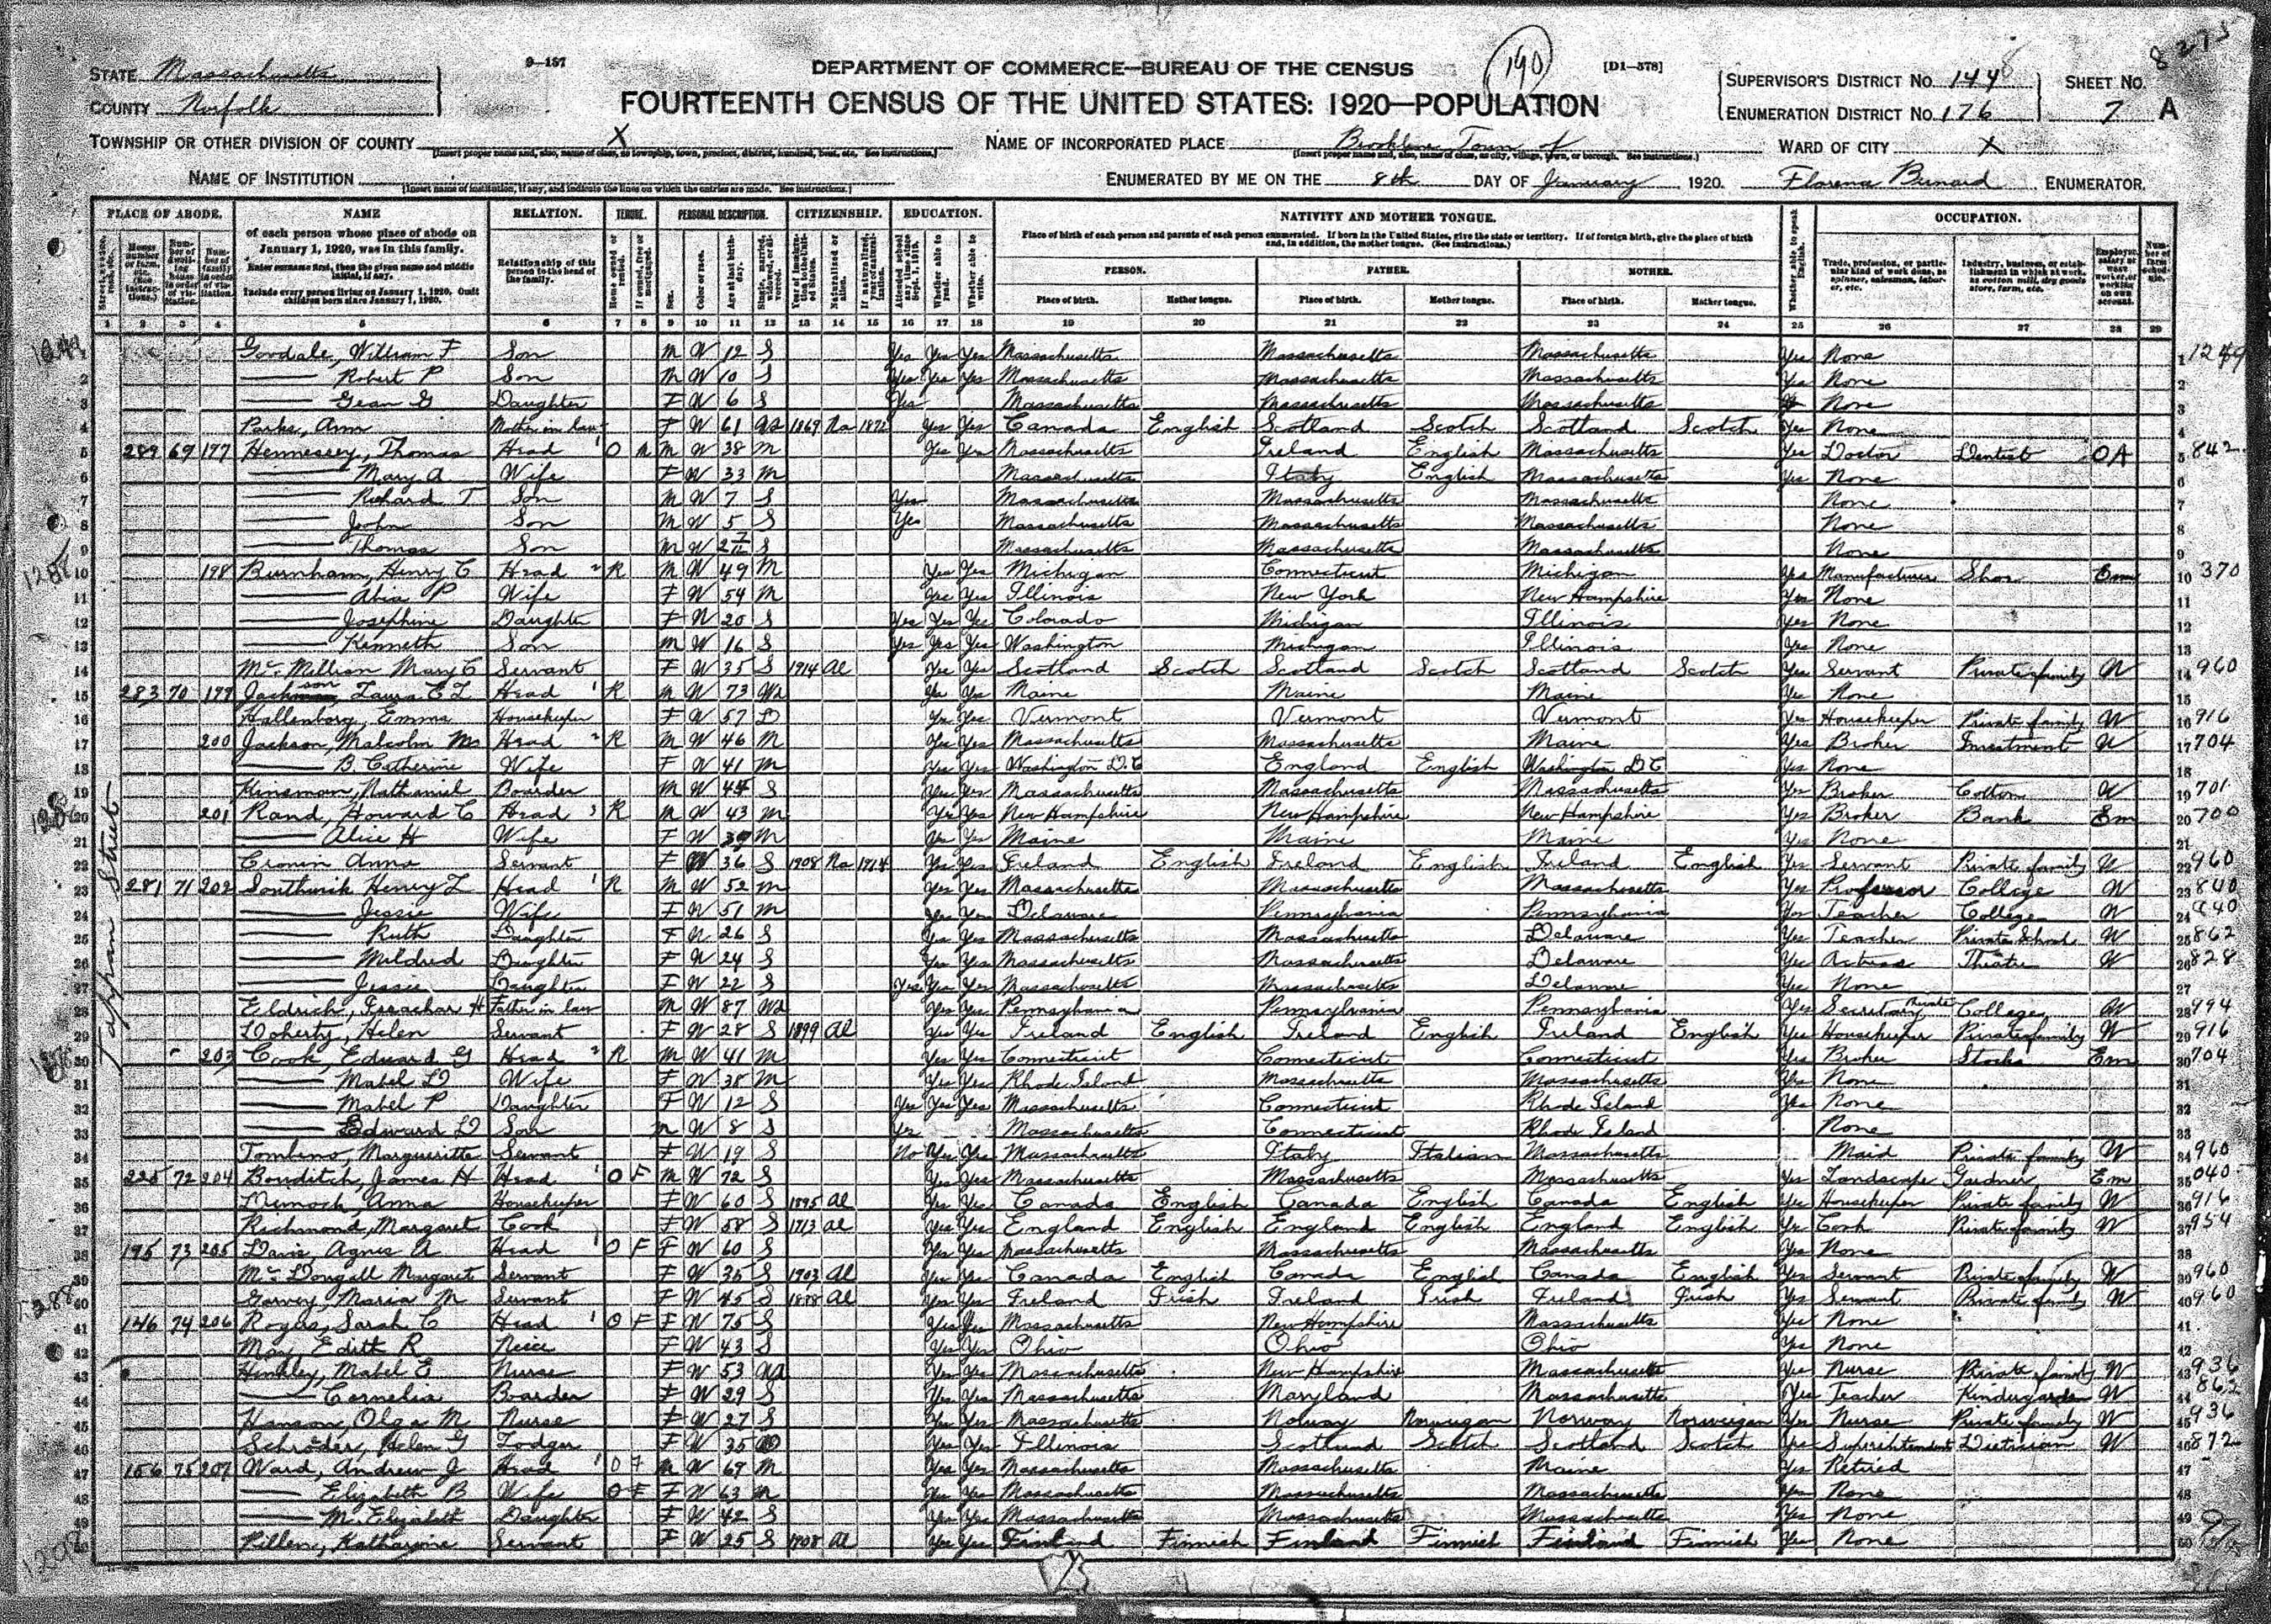 8 273
STATE Massachusetts 9-157 DEPARTMENT OF COMMERCE—BUREAU OF THE CENSUS 190 [D1-578] SUPERVISOR'S DISTRICT No. 144 8 SHEET No.
COUNTY Norfolk FOURTEENTH CENSUS OF THE UNITED STATES: 1920—POPULATION ENUMERATION DISTRICT No. 176 7 A
TOWNSHIP OR OTHER DIVISION OF COUNTY X NAME OF INCORPORATED PLACE Brookline Town of WARD OF CITY X
[Insert proper name and, also, name of class, as township, town, precinct, district, hundred, beat, etc. See instructions.] [Insert proper name and, also, name of class, as city, village, town, or borough. See instructions.]
NAME OF INSTITUTION ENUMERATED BY ME ON THE 8th DAY OF January 1920. Florena ENUMERATOR.
[Insert name of institution, if any, and indicate the lines on which the entries are made. See instructions.]
PLACE OF ABODE. NAME RELATION. TENURE. PERSONAL DESCRIPTION. CITIZENSHIP. EDUCATION. NATIVITY AND MOTHER TONGUE. Whether able to speak English. OCCUPATION.
of each person whose place of abode on January 1, 1920, was in this family.
Enter surname first, then the given name and middle initial, if any.
Include every person living on January 1, 1920. Omit children born since January 1, 1920.
Relationship of this person to the head of the family.
Place of birth of each person and parents of each person enumerated. If born in the United States, give the state or territory. If of foreign birth, give the place of birth and, in addition, the mother tongue. (See instructions.)
PERSON. FATHER. MOTHER.
Place of birth. Mother tongue. Place of birth. Mother tongue. Place of birth. Mother tongue.
1 2 3 4 5 6 7 8 9 10 11 12 13 14 15 16 17 18 19 20 21 22 23 24 25 26 27 28 29
Tappan Street
1 Goodale, William F Son M W 12 S Yes Yes Yes Massachusetts Massachusetts Massachusetts Yes None 1
2 Robert P Son M W 10 S Yes Yes Yes Massachusetts Massachusetts Massachusetts Yes None 2
3 Jean G Daughter F W 6 S Yes Massachusetts Massachusetts Massachusetts None 3
Parks, Ann Mother in law F W 61 Wd 1869 Na 1872 Yes Yes Canada English Scotland Scotch Scotland Scotch Yes None 4
5 289 69 197 Hennessey, Thomas Head 1 O M M W 38 M Yes Yes Massachusetts Ireland English Massachusetts Yes Doctor Dentist OA 5 842
6 Mary A Wife F W 33 M Massachusetts Italy English Massachusetts Yes None 6
7 Richard T Son M W 7 S Yes Massachusetts Massachusetts Massachusetts None 7
8 John Son M W 5 S Yes Massachusetts Massachusetts Massachusetts None 8
9 Thomas Son M W 2 7/12 S Massachusetts Massachusetts Massachusetts None 9
10 198 Burnham, Henry C Head 2 R M W 49 M Yes Yes Michigan Connecticut Michigan Yes Manufacturer Shoe Em 10 370
11 P Wife F W 54 M Yes Yes Illinois New York New Hampshire Yes None 11
12 Josephine Daughter F W 20 S Yes Yes Yes Colorado Michigan Illinois Yes None 12
13 Kenneth Son M W 16 S Yes Yes Yes Washington Michigan Illinois Yes None 13
14 McMillian Mary C Servant F W 35 S 1914 Al Yes Yes Scotland Scotch Scotland Scotch Scotland Scotch Yes Servant Private family W 14 960
15 283 70 199 Jackson, Laura E L Head 1 R M W 73 Wd Yes Yes Maine Maine Maine Yes None 15
16 Hallenborg, Emma Housekeeper F W 57 D Yes Yes Vermont Vermont Vermont Yes Housekeeper Private family W 16 916
17 200 Jackson, Malcolm Mc Head 2 R M W 46 M Yes Yes Massachusetts Massachusetts Maine Yes Broker Investment W 17 704
18 B. Catherine Wife F W 41 M Yes Yes Washington D.C England English Washington D C Yes None 18
19 Kinsman, Nathaniel Boarder M W 45 S Yes Yes Massachusetts Massachusetts Massachusetts Yes Broker Cotton W 19 701
20 201 Rand, Howard C Head 3 R M W 43 M Yes Yes New Hampshire New Hampshire New Hampshire Yes Broker Bank Em 20 700
21 Alice H Wife F W 39 M Yes Yes Maine Maine Maine Yes None 21
22 Cronin Anna Servant F W 36 S 1908 Na 1914 Yes Yes Ireland English Ireland English Ireland English Yes Servant Private family W 22 960
23 281 71 202 Southwick Henry L Head 1 R M W 52 M Yes Yes Massachusetts Massachusetts Massachusetts Yes Professor College W 23 840
24 Jessie Wife F W 51 M Yes Yes Delaware Pennsylvania Pennsylvania Yes Teacher College W 24 840
25 Ruth Daughter F W 26 S Yes Yes Massachusetts Massachusetts Delaware Yes Teacher Private School W 25 862
26 Mildred Daughter F W 24 S Yes Yes Massachusetts Massachusetts Delaware Yes Actress Theatre W 26 828
27 Jessie Daughter F W 22 S Yes Yes Yes Massachusetts Massachusetts Delaware Yes None 27
28 Eldrich, H Father in law M W 87 Wd Yes Yes Pennsylvania Pennsylvania Pennsylvania Yes Secretary Private College W 28 994
29 Doherty, Helen Servant F W 28 S 1899 Al Yes Yes Ireland English Ireland English Ireland English Yes Housekeeper Private family W 29 916
30 203 Cook, Edward G Head 2 R M W 41 M Yes Yes Connecticut Connecticut Connecticut Yes Broker Stocks Em 30 704
31 Mabel D Wife F W 38 M Yes Yes Rhode Island Massachusetts Massachusetts Yes None 31
32 Mabel P Daughter F W 12 S Yes Yes Yes Massachusetts Connecticut Rhode Island Yes None 32
33 Edward D Son M W 8 S Yes Massachusetts Connecticut Rhode Island None 33
34 Tombeno, Margueritte Servant F W 19 S No Yes Yes Massachusetts Italy Italian Massachusetts Maid Private family W 34 960
35 225 72 204 Bowditch, James H Head 1 O F M W 72 S Yes Yes Massachusetts Massachusetts Massachusetts Yes Landscape Gardner Em 35 040
36 Anna Housekeeper F W 60 S 1895 Al Yes Yes Canada English Canada English Canada English Yes Housekeeper Private family W 36 916
37 Richmond, Margaret Cook F W 58 S 1913 Al Yes Yes England English England English England English Yes Cook Private family W 37 954
38 195 73 205 Davis, Agnes A Head 1 O F F W 60 S Yes Yes Massachusetts Massachusetts Massachusetts Yes None 38
39 McDougall Margaret Servant F W 35 S 1903 Al Yes Yes Canada English Canada English Canada English Yes Servant Private family W 39 960
40 Garvey, Maria M Servant F W 45 S Al Yes Yes Ireland Irish Ireland Irish Ireland Irish Yes Servant Private family W 40 960
41 146 74 206 Rogers, Sarah C Head 1 O F F W 75 S Yes Yes Massachusetts New Hampshire Massachusetts Yes None 41
42 Edith R Neice F W 43 S Yes Yes Ohio Ohio Ohio Yes None 42
43 Hinkley, Mabel E Nurse F W 53 Wd Yes Yes Massachusetts New Hampshire Massachusetts Yes Nurse Private family W 43 936
44 Cornelia Boarder F W 29 S Yes Yes Massachusetts Maryland Massachusetts Yes Teacher Kindergarden W 44 862
45 Hanson, Olga M Nurse F W 27 S Yes Yes Massachusetts Norway Norwegian Norway Norwegian Yes Nurse Private family W 45 936
46 Schroder, Helen G Lodger F W 35 Yes Yes Illinois Scotland Scotch Scotland Scotch Yes Superintendent Dietician W 46 872
47 156 75 207 Ward, Andrew J Head 1 O F M W 69 M Yes Yes Massachusetts Massachusetts Maine Yes Retired 47
48 Elizabeth B Wife O F F W 63 M Yes Yes Massachusetts Massachusetts Massachusetts Yes None 48
49 M. Elizabeth Daughter F W 42 S Yes Yes Massachusetts Massachusetts Massachusetts Yes None 49
50 Killen, Katharine Servant F W 25 S 1908 Al Yes Yes Finland Finnish Finland Finnish Finland Finnish Yes None 50